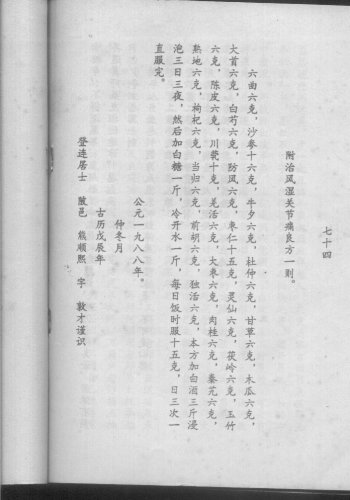 七十四
附治风湿关节痛良方一则。
六曲六克，沙参十六克，牛夕六克，杜仲六克，甘草六克，木瓜六克，
大首六克，白芍六克，防风六克，枣仁十五克，灵仙六克，茯岭六克，玉竹
六克，陈皮六克，川芎十克，羌活六克，大枣六克，肉桂六克，秦艽六克，
熟地六克，枸杞六克，当归六克，前胡六克，独活六克，本方加白酒三斤浸
泡三日三夜，然后加白糖一斤，冷开水一斤，每日饭时服十五克，日三次一
直服完。
公元一九八八年。
仲冬月
古历戊辰年
登连居士 陂邑 熊顺熙 字 敦才谨识